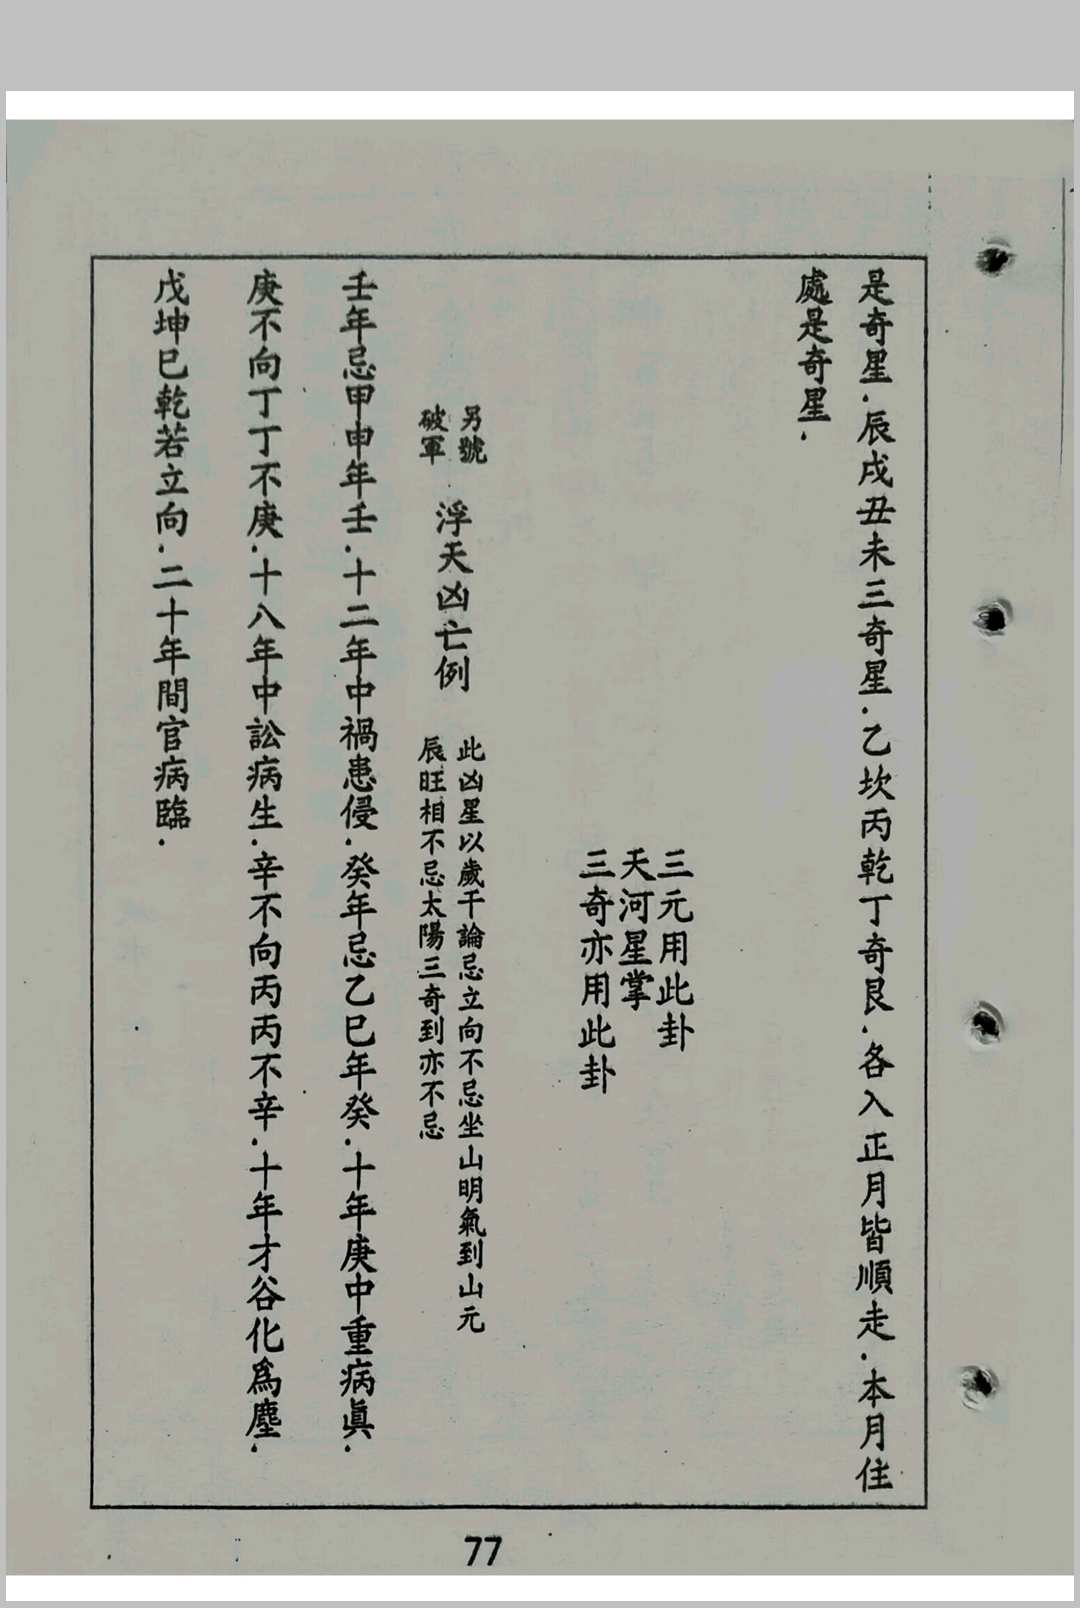 是奇星．辰戌丑未三奇星．乙坎丙乾丁奇艮．各入正月皆順走．本月住
處是奇星．
三元用此卦
天河星掌
三奇亦用此卦
另號
破軍
浮天凶亡例
此凶星以歲干論忌立向不忌坐山明氣到山元
辰旺相不忌太陽三奇到亦不忌
壬年忌甲申年壬．十二年中禍患侵．癸年忌乙巳年癸．十年庚中重病眞．
庚不向丁丁不庚．十八年中訟病生．辛不向丙丙不辛．十年才谷化爲塵．
戊坤巳乾若立向．二十年間官病臨．
77